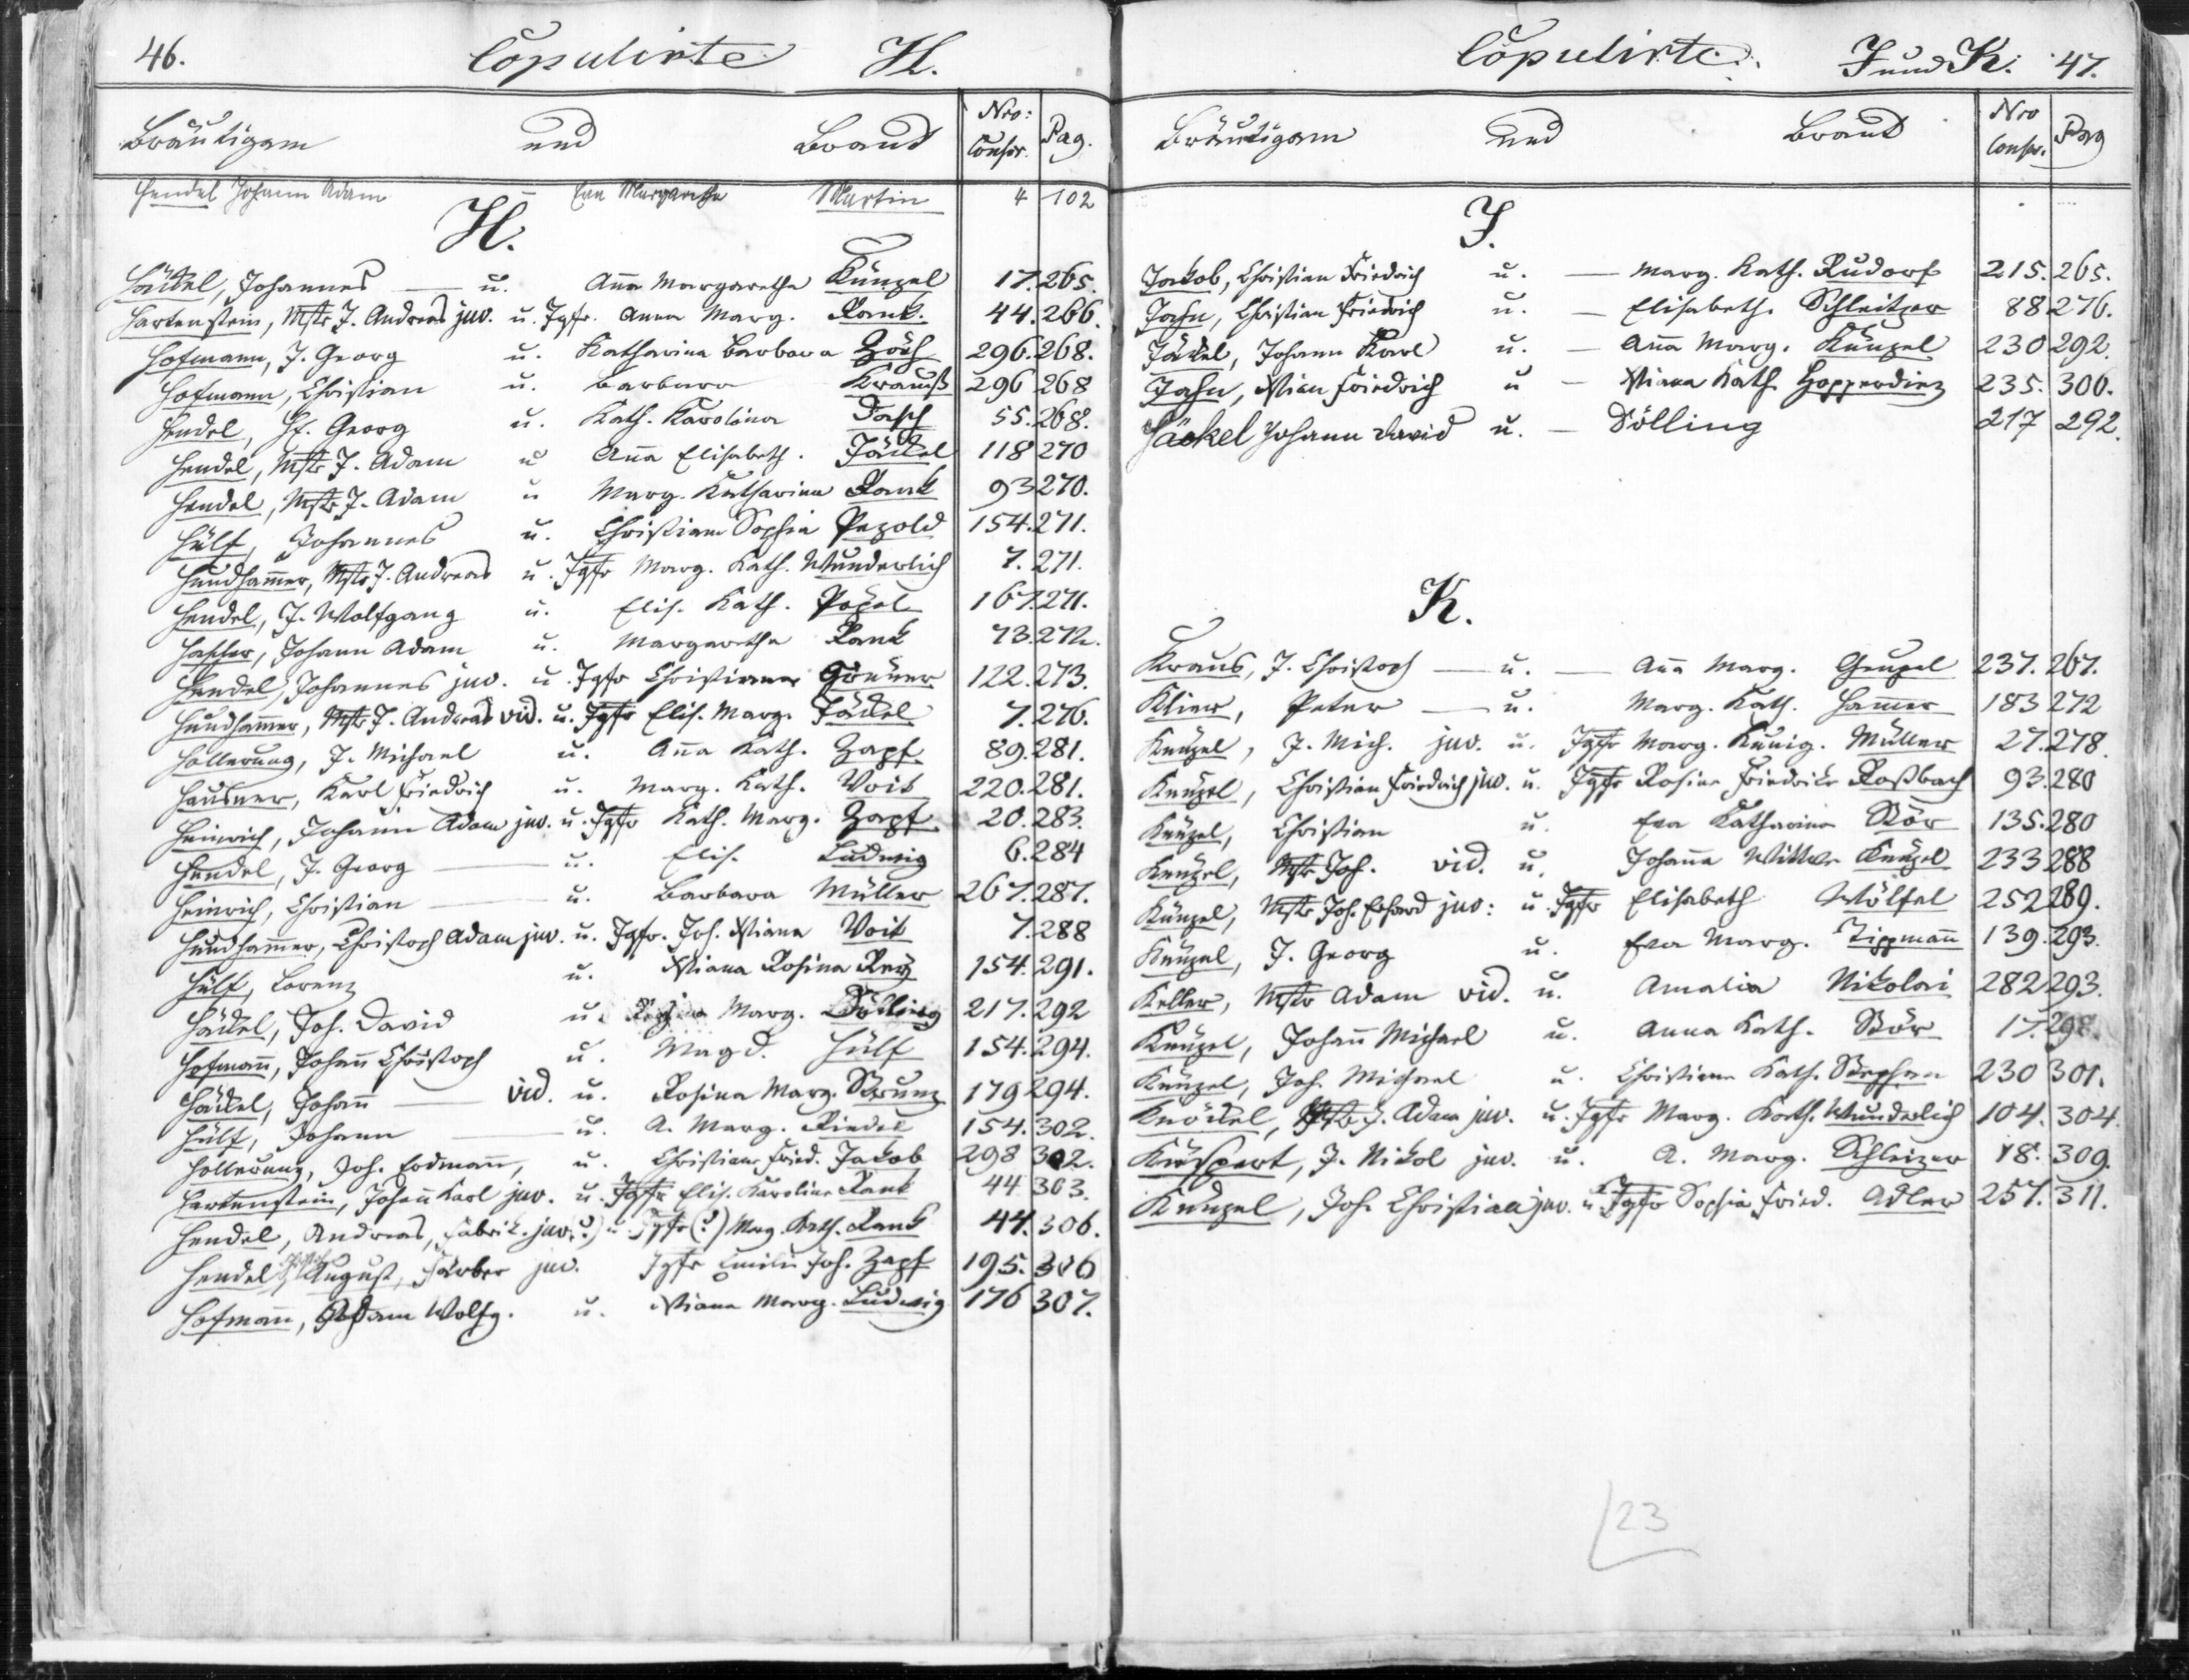 46. Copulirte H.
Bräutigam und Braut Nro: Conscr. Pag.
Hendel Johann Adam – Eva Margaretha Martin 4 102
H.
Häckel, Johannes — u. Aña Margaretha Künzel 17. 265.
Hartenstein, Mstr J. Andreas juv. u. Jgfr. Anna Marg. Rank. 44. 266.
Hofmann, J. Georg u. Katharina Barbara Zöch 296. 268.
Hofmann, Christian u. Barbara Krauß 296 268
Hendel, J. Georg u. Kath. Karolina Dasch 55. 268.
Hendel, Mstr J. Adam u Aña Elisabeth. Jäckel 118 270
Hendel, Mstr J. Adam u Marg. Katharina Rank 93 270.
Hülf, Johannes u. Christiana Sophia Pezold 154. 271.
Hundham̄er, Mstr J. Andreas u. Jgfr Marg. Kath. Wunderlich 7. 271.
Hendel, J. Wolfgang u. Elis. Kath. Pözel 167. 271.
Hascher, Johann Adam u. Margaretha Rank 73. 272.
Hendel, Johannes juv. u. Jgfr Christiana Greüner 122. 273.
Hundham̄er, Mstr J. Andreas vid. u. Jgfr Elis. Marg. Jäckel 7. 276.
Hollerung, J. Michael u. Aña Kath. Zapf 89. 281.
Hausner, Karl Friedrich u. Marg. Kath. Voit 220. 281.
Heinrich, Johann Adam juv. u. Jgfr Kath. Marg. Zapf 20. 283.
Hendel, J. Georg — u. Elis. Ludwig 6. 284
Heinrich, Christian — u. Barbara Müller 267. 287.
Hundham̄er, Christoph Adam juv. u. Jgfr. Joh. Xtiana Voit 7. 288
Hülf, Lorenz u. Xtiana Rosina Reiz 154. 291.
Häckel, Joh. David u. Marg. Dölling 217. 292
Hofmañ, Johañ Christoph u. Magd. Hülf 154. 294.
Häckel, Johañ — vid. u. Rosina Marg. Strunz 179 294.
Hülf, Johann — u. A. Marg. Riedel 154. 302.
Hollerung, Joh. Erdmañ, u. Christiane Fried. Jakob 298 302.
Hartenstein, Johañ Karl juv. u. Jgfr Elis. Karoline Rank 44 303.
Hendel, Andreas, Fabrik. juv(?) u Jgfr(?) Marg. Kath. Rank 44. 306.
Hendel, August, Färber juv. Jgfr Emilie Joh. Zapf 195. 306
Hofmañ, Adam Wolfg. u. Xtiana Marg. Ludwig 176 307.
Copulirte: J und K: 47.
Bräutigam und Braut Nro Conscr. Pag
J.
Jakob, Christian Friedrich u. — Marg. Kath. Rudorf 215. 265.
Jahn, Christian Friedrich u. — Elisabeth. Schleitzer 88 276.
Jäckel, Johann Karl u. — Aña Marg. Künzel 230 292.
Jahn, Xtian Friedrich u — Xtiana Kath. Hopperdiez 235. 306.
Jäckel Johann David u. — Dölling 217 292.
K.
Kraus, J. Christoph — u. — Aña Marg. Geupel 237. 267.
Klier, Peter — u. Marg. Kath. Ham̄er 183 272
Künzel, J. Mich. juv. u. Jgfr Marg. Kunig. Müller 27. 278.
Künzel, Christian Friedrich juv. u. Jgfr Rosine Friedrike Roßbach 93. 280
Künzel, Christian u. Eva Katharina Stör 135. 280
Künzel, Mstr Joh. vid. u. Johaña Wittwe Künzel 233 288
Künzel, Mstr Joh. Erhard juv: u. Jgfr Elisabeth Wölfel 252 289.
Künzel, J. Georg u. Eva Marg. Tippmañ 139. 293.
Keller, Mstr Adam vid. u. Amalia Nikolai 282 293.
Künzel, Johañ Michael u. Anna Kath. Stör 17. 298.
Künzel, Joh. Michael u. Christiana Kath. Stephan 230 301.
Knöckel, Mstr J. Adam juv. u. Jgfr Marg. Kath. Wunderlich 104. 304.
Küspert, J. Nikol juv. u. A. Marg. Schleizer 18. 309.
Künzel, Joh. Christian juv. u. Jgfr Sophia Fried. Adler 257. 311.
23